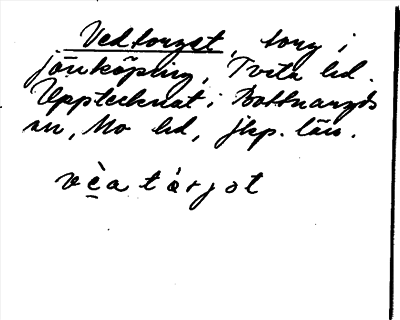 Vedtorget, torg i
Jönköping, Tveta hd.
Upptecknat i Bottnaryds
sn, Mo hd, Jkp. län.
vèa tårjet